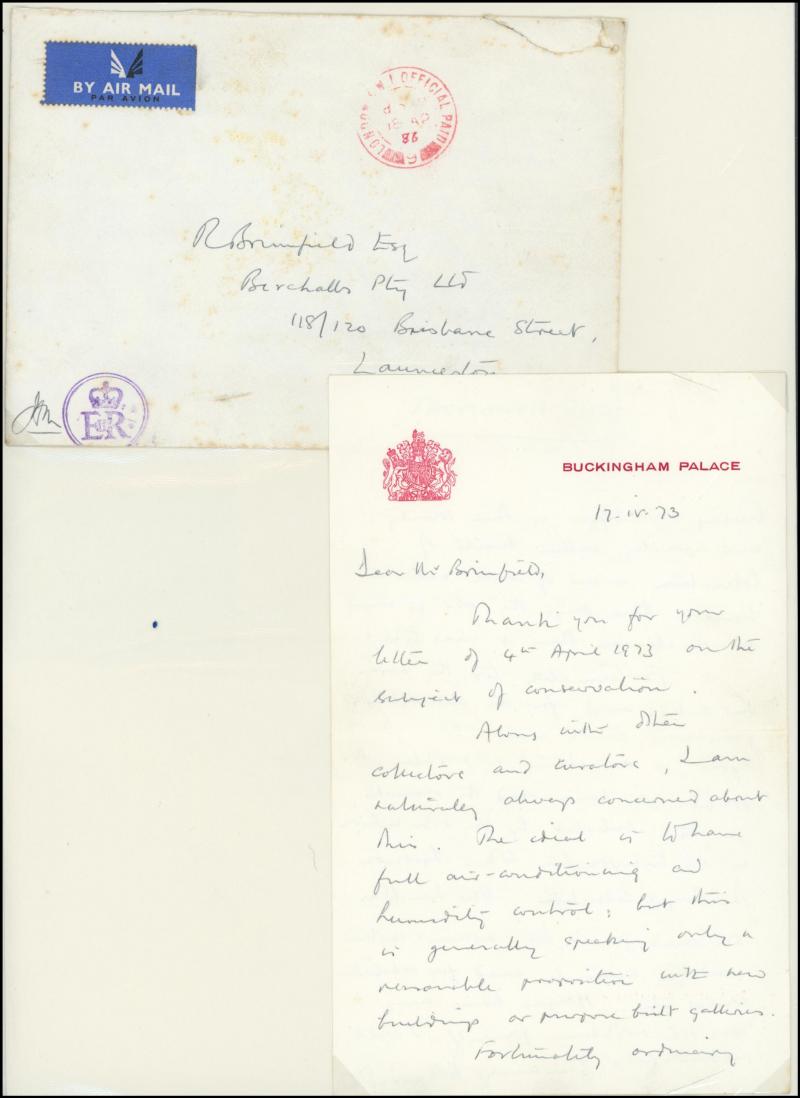 BY AIR MAIL
PAR AVION
LONDON S.W.1 OFFICIAL PAID
18 AP
6
R Brimfield Esq
Birchalls Pty Ltd
118/120 Brisbane Street,
Launceston
EIIR
BUCKINGHAM PALACE
17-iv-73
Dear Mr Brimfield,
Thank you for your
letter of 4th April 1973 on the
subject of conservation.
Along with other
collectors and curators, I am
naturally always concerned about
this. The ideal is to have
full air-conditioning and
humidity control; but this
is generally speaking only a
reasonable proposition with new
buildings or purpose built galleries.
Fortunately ordinary